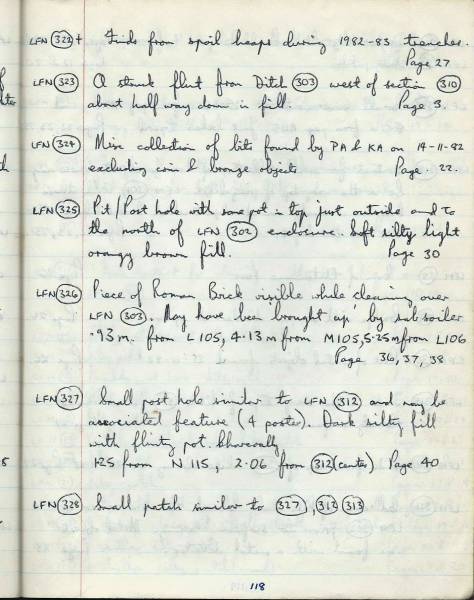 LFN (322) + Finds from spoil heaps during 1982-83 trenches.
Page 27
LFN (323) A struck flint from Ditch (303) west of section (310)
about half way down in fill. Page 3.
LFN (324) Misc collection of bits found by PA & KA on 14-11-82
excluding coin & bronze objects Page 22.
LFN (325) Pit/Post hole with some pot in top just outside and to
the north of LFN (302) enclosure. Soft silty light
orangy brown fill. Page 30
LFN (326) Piece of Roman Brick visible while cleaning over
LFN (303). May have been 'brought up' by subsoiler
.93m. from L105, 4.13m from M105, 5.25m from L106
Page 36, 37, 38
LFN (327) Small post hole similar to LFN (312) and may be
associated feature (4 poster). Dark silty fill
with flinty pot.
1.25 from N115, 2.06 from (312) (center) Page 40
LFN (328) Small patch similar to (327), (312) (313)
118